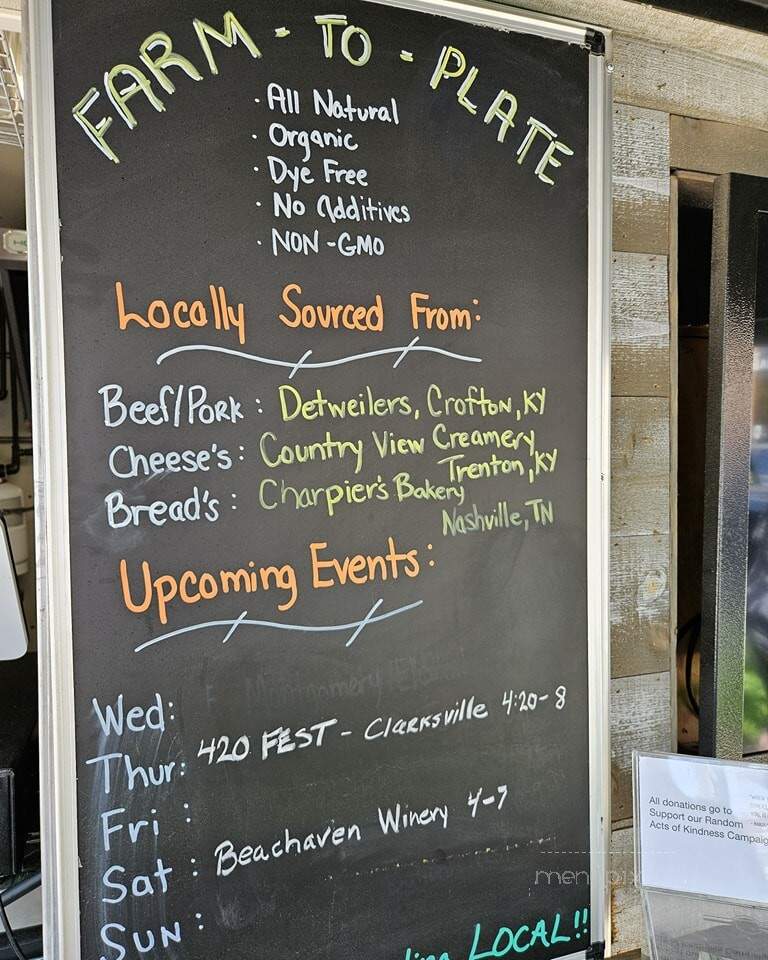 FARM - TO - PLATE
· All Natural
· Organic
· Dye Free
· No Additives
· NON-GMO
Locally Sourced From:
Beef/Pork : Detweilers, Crofton, KY
Cheese's : Country View Creamery
Trenton, KY
Bread's : Charpier's Bakery
Nashville, TN
Upcoming Events:
Wed:
Thur: 420 FEST - Clarksville 4:20-8
Fri :
Sat : Beachaven Winery 4-7
SUN :
LOCAL!!
All donations go to
Support our Random
Acts of Kindness Campaig